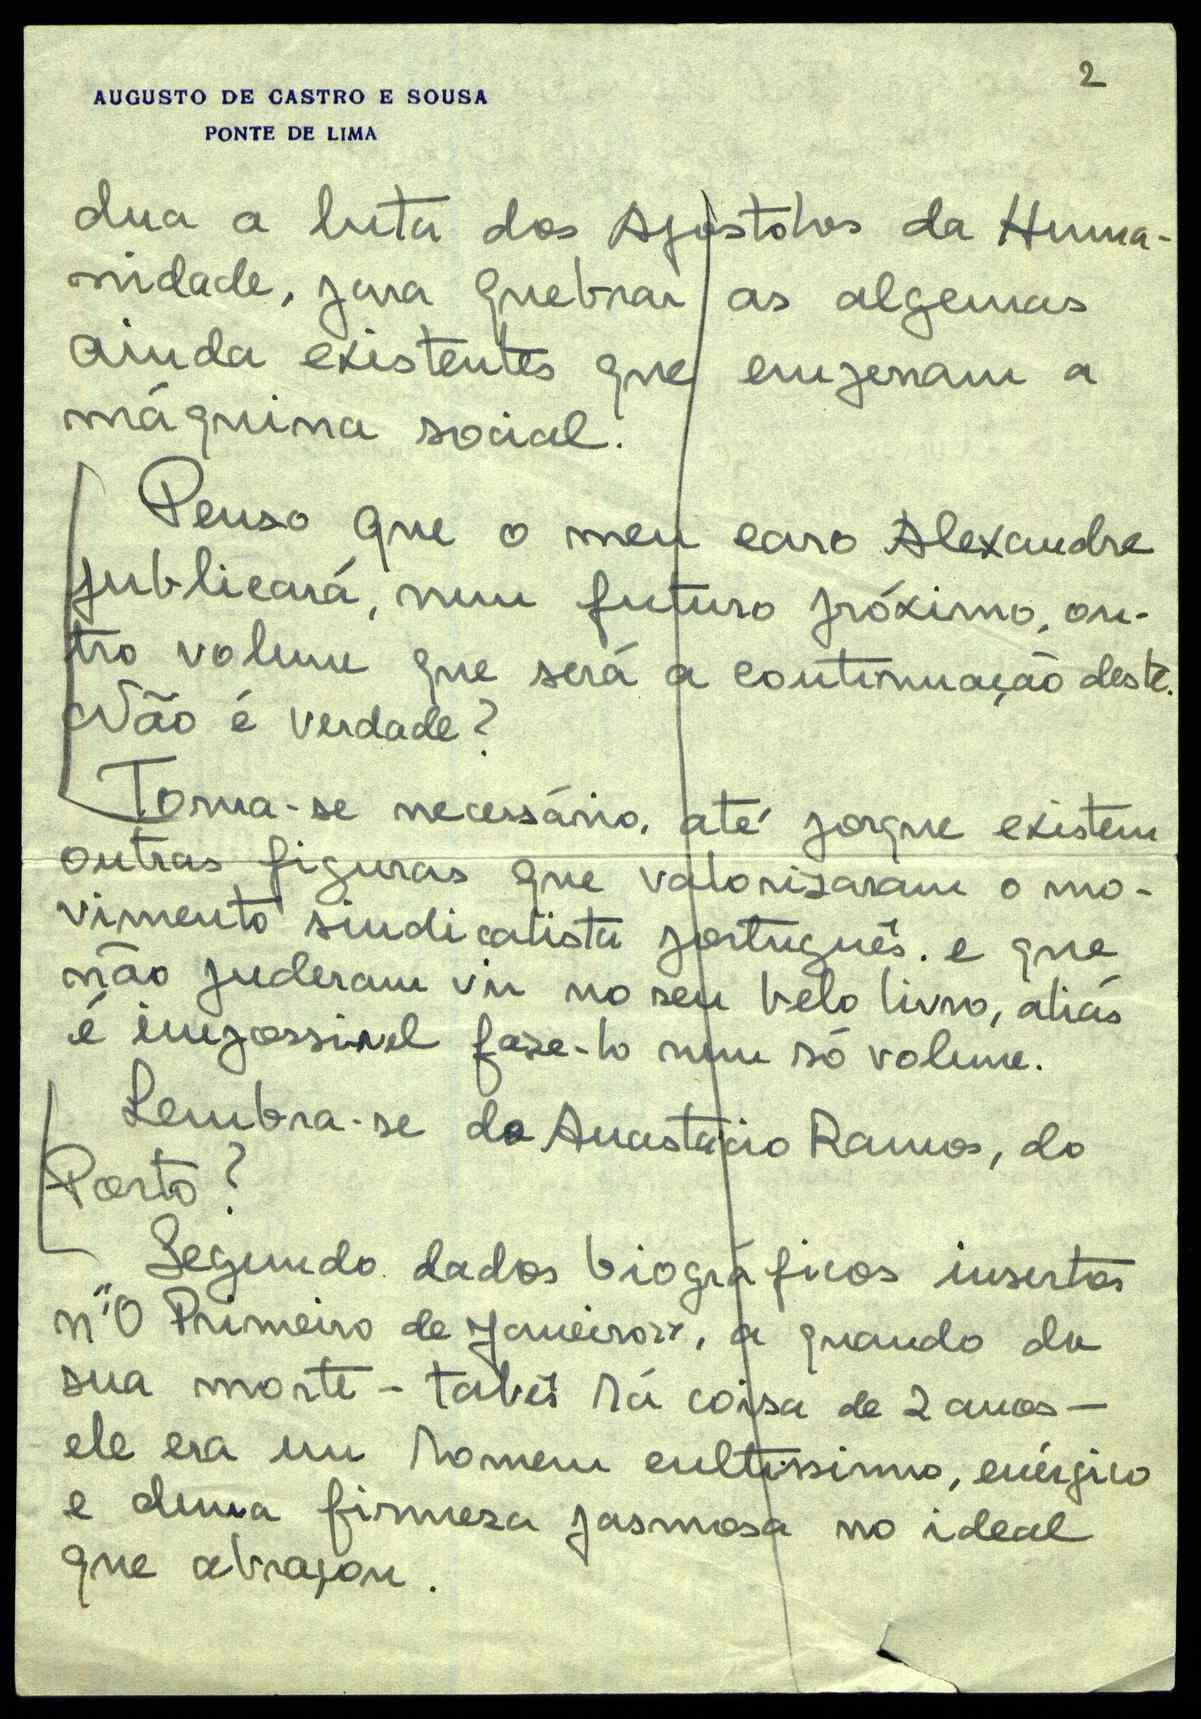 2
AUGUSTO DE CASTRO E SOUSA
PONTE DE LIMA
dua a luta dos Apóstolos da Huma-
nidade, para quebrar as algemas
ainda existentes que emperram a
máquina social.
Penso que o meu caro Alexandre
publicará, num futuro próximo, ou-
tro volume que será a continuação deste.
Não é verdade?
Torna-se necessário, até porque existem
outras figuras que valorizaram o mo-
vimento sindicalista português. e que
não puderam vir no seu belo livro, aliás
é impossivel faze-lo num só volume.
Lembra-se do Anastácio Ramos, do
Porto?
Segundo dados biográficos insertos
n"O Primeiro de Janeiro", a quando da
sua morte - talvês há coisa de 2 anos -
ele era um homem cultissimo, enérgico
e duma firmesa pasmosa no ideal
que abraçou.